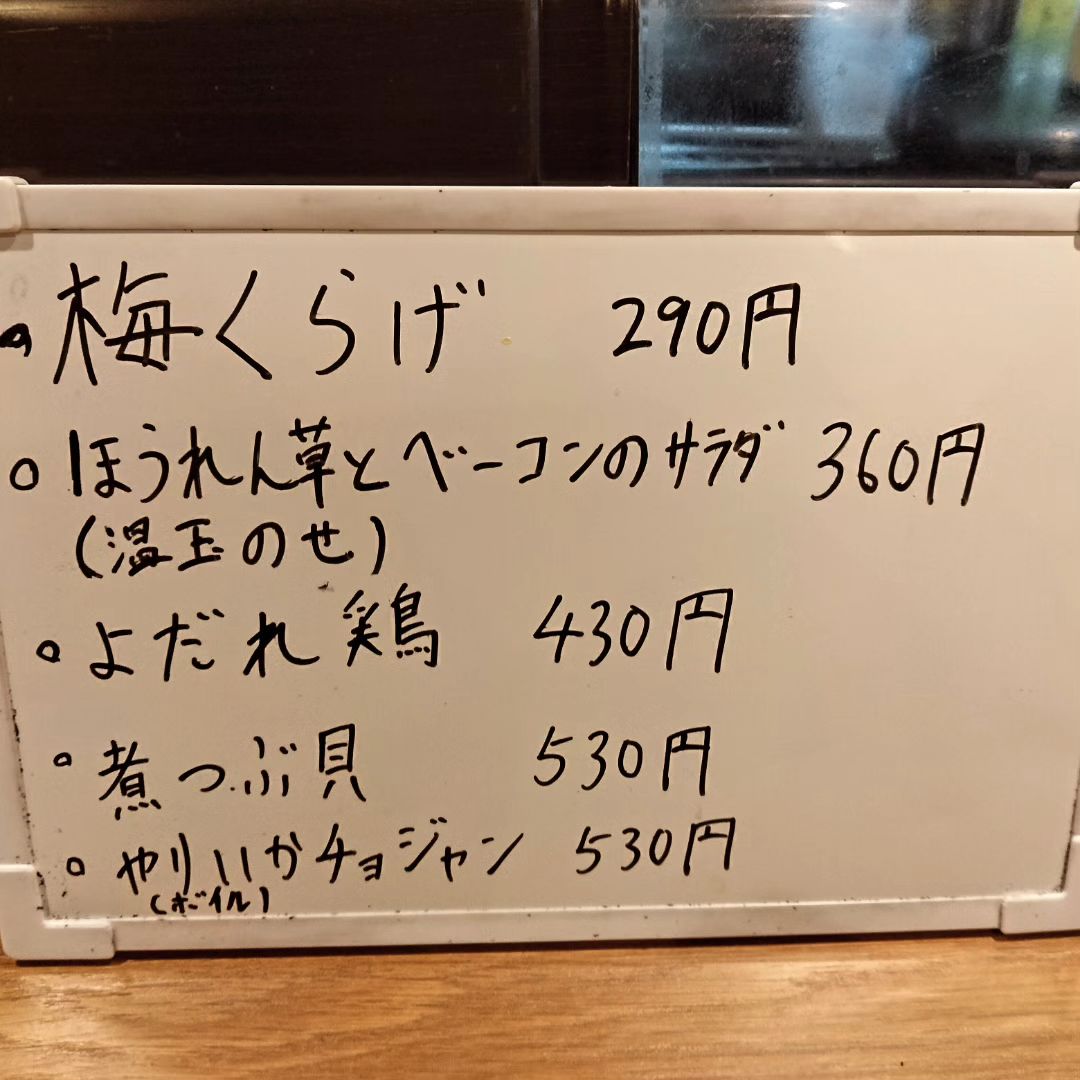 ・梅くらげ 290円
○ほうれん草とベーコンのサラダ 360円
(温玉のせ)
○よだれ鶏 430円
○煮つぶ貝 530円
○やりいかチョジャン 530円
(ボイル)